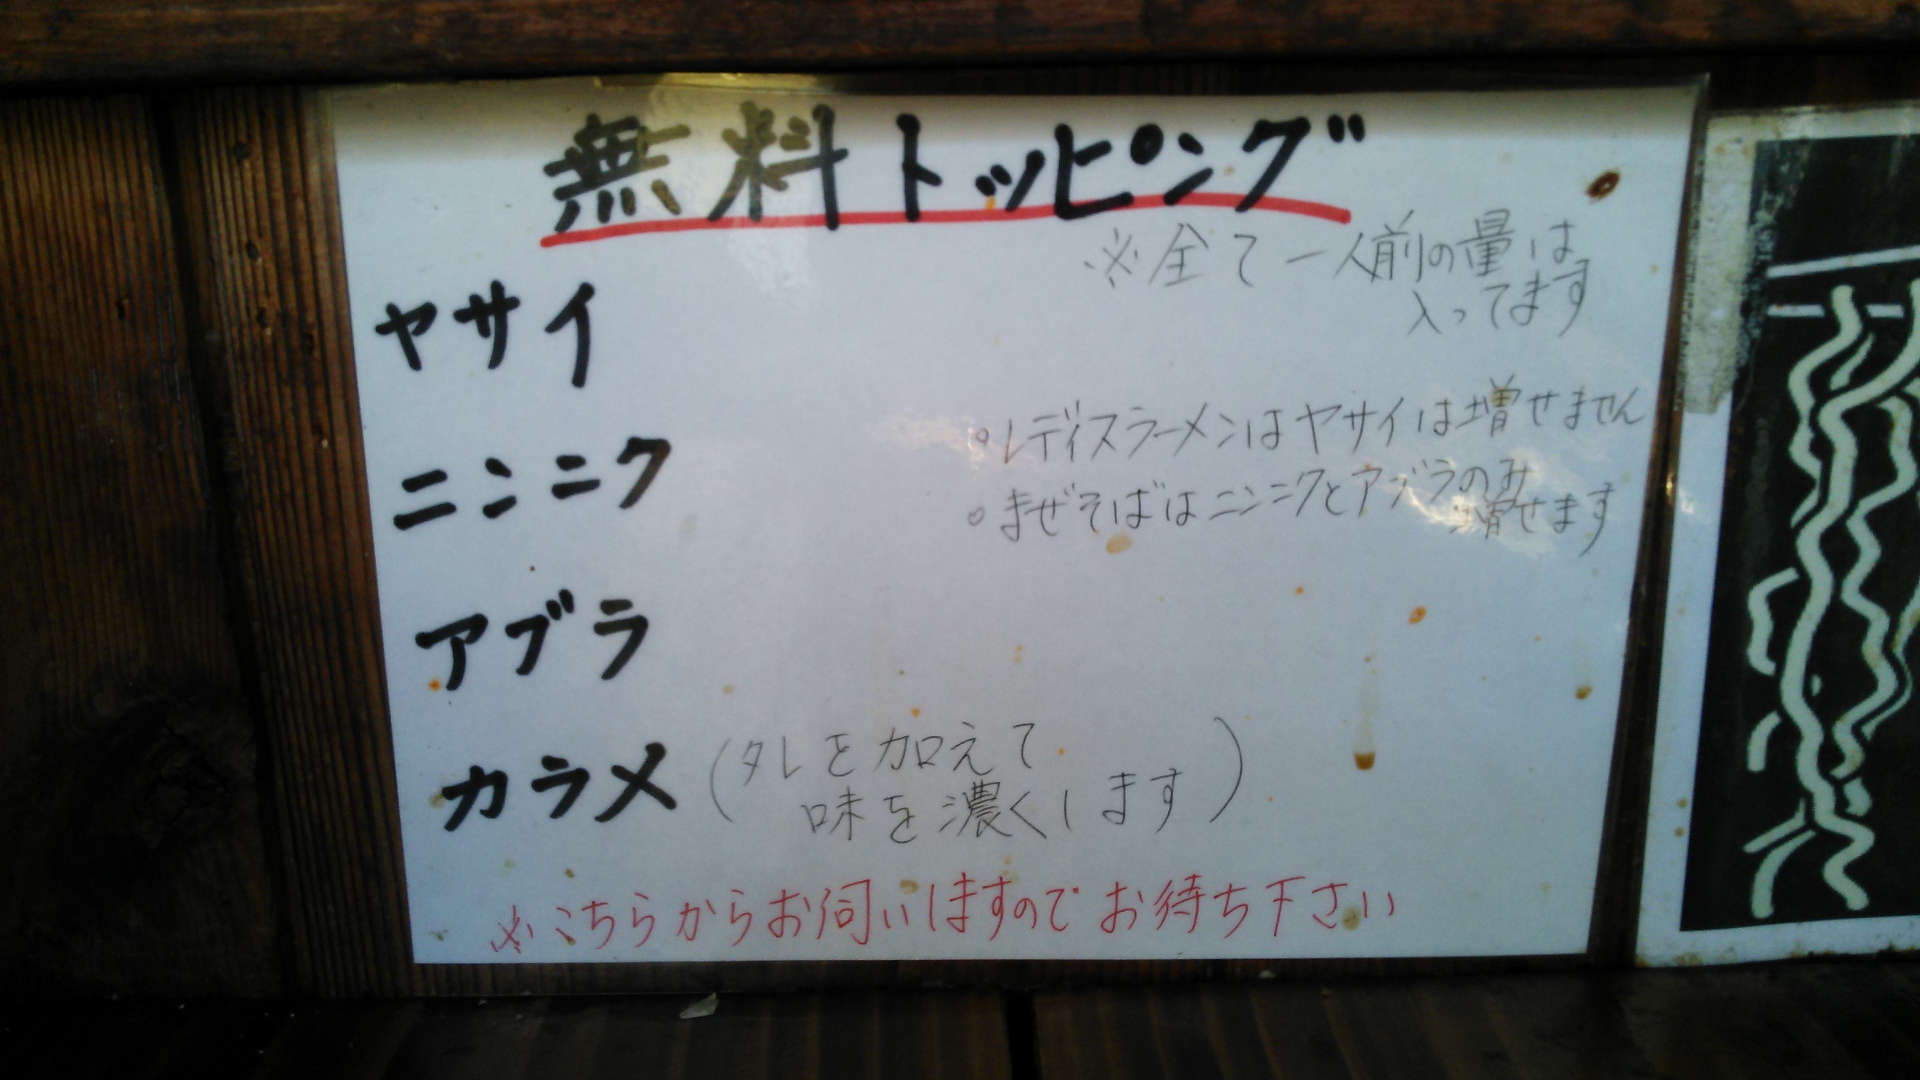 無料トッピング
※全て一人前の量は
入ってます
ヤサイ
。レディスラーメンはヤサイは増せません
ニンニク
。まぜそばはニンニクとアブラのみ
増せます
アブラ
カラメ(タレを加えて
味を濃くします)
※こちらからお伺いしますのでお待ち下さい